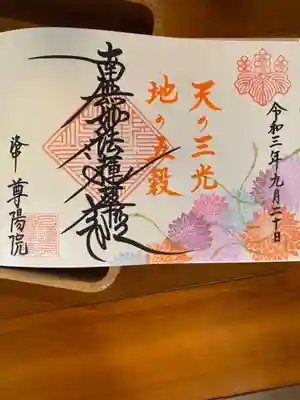 令和三年九月二十日
天の三光
地の五穀
南無妙法蓮華経
洛中 尊陽院